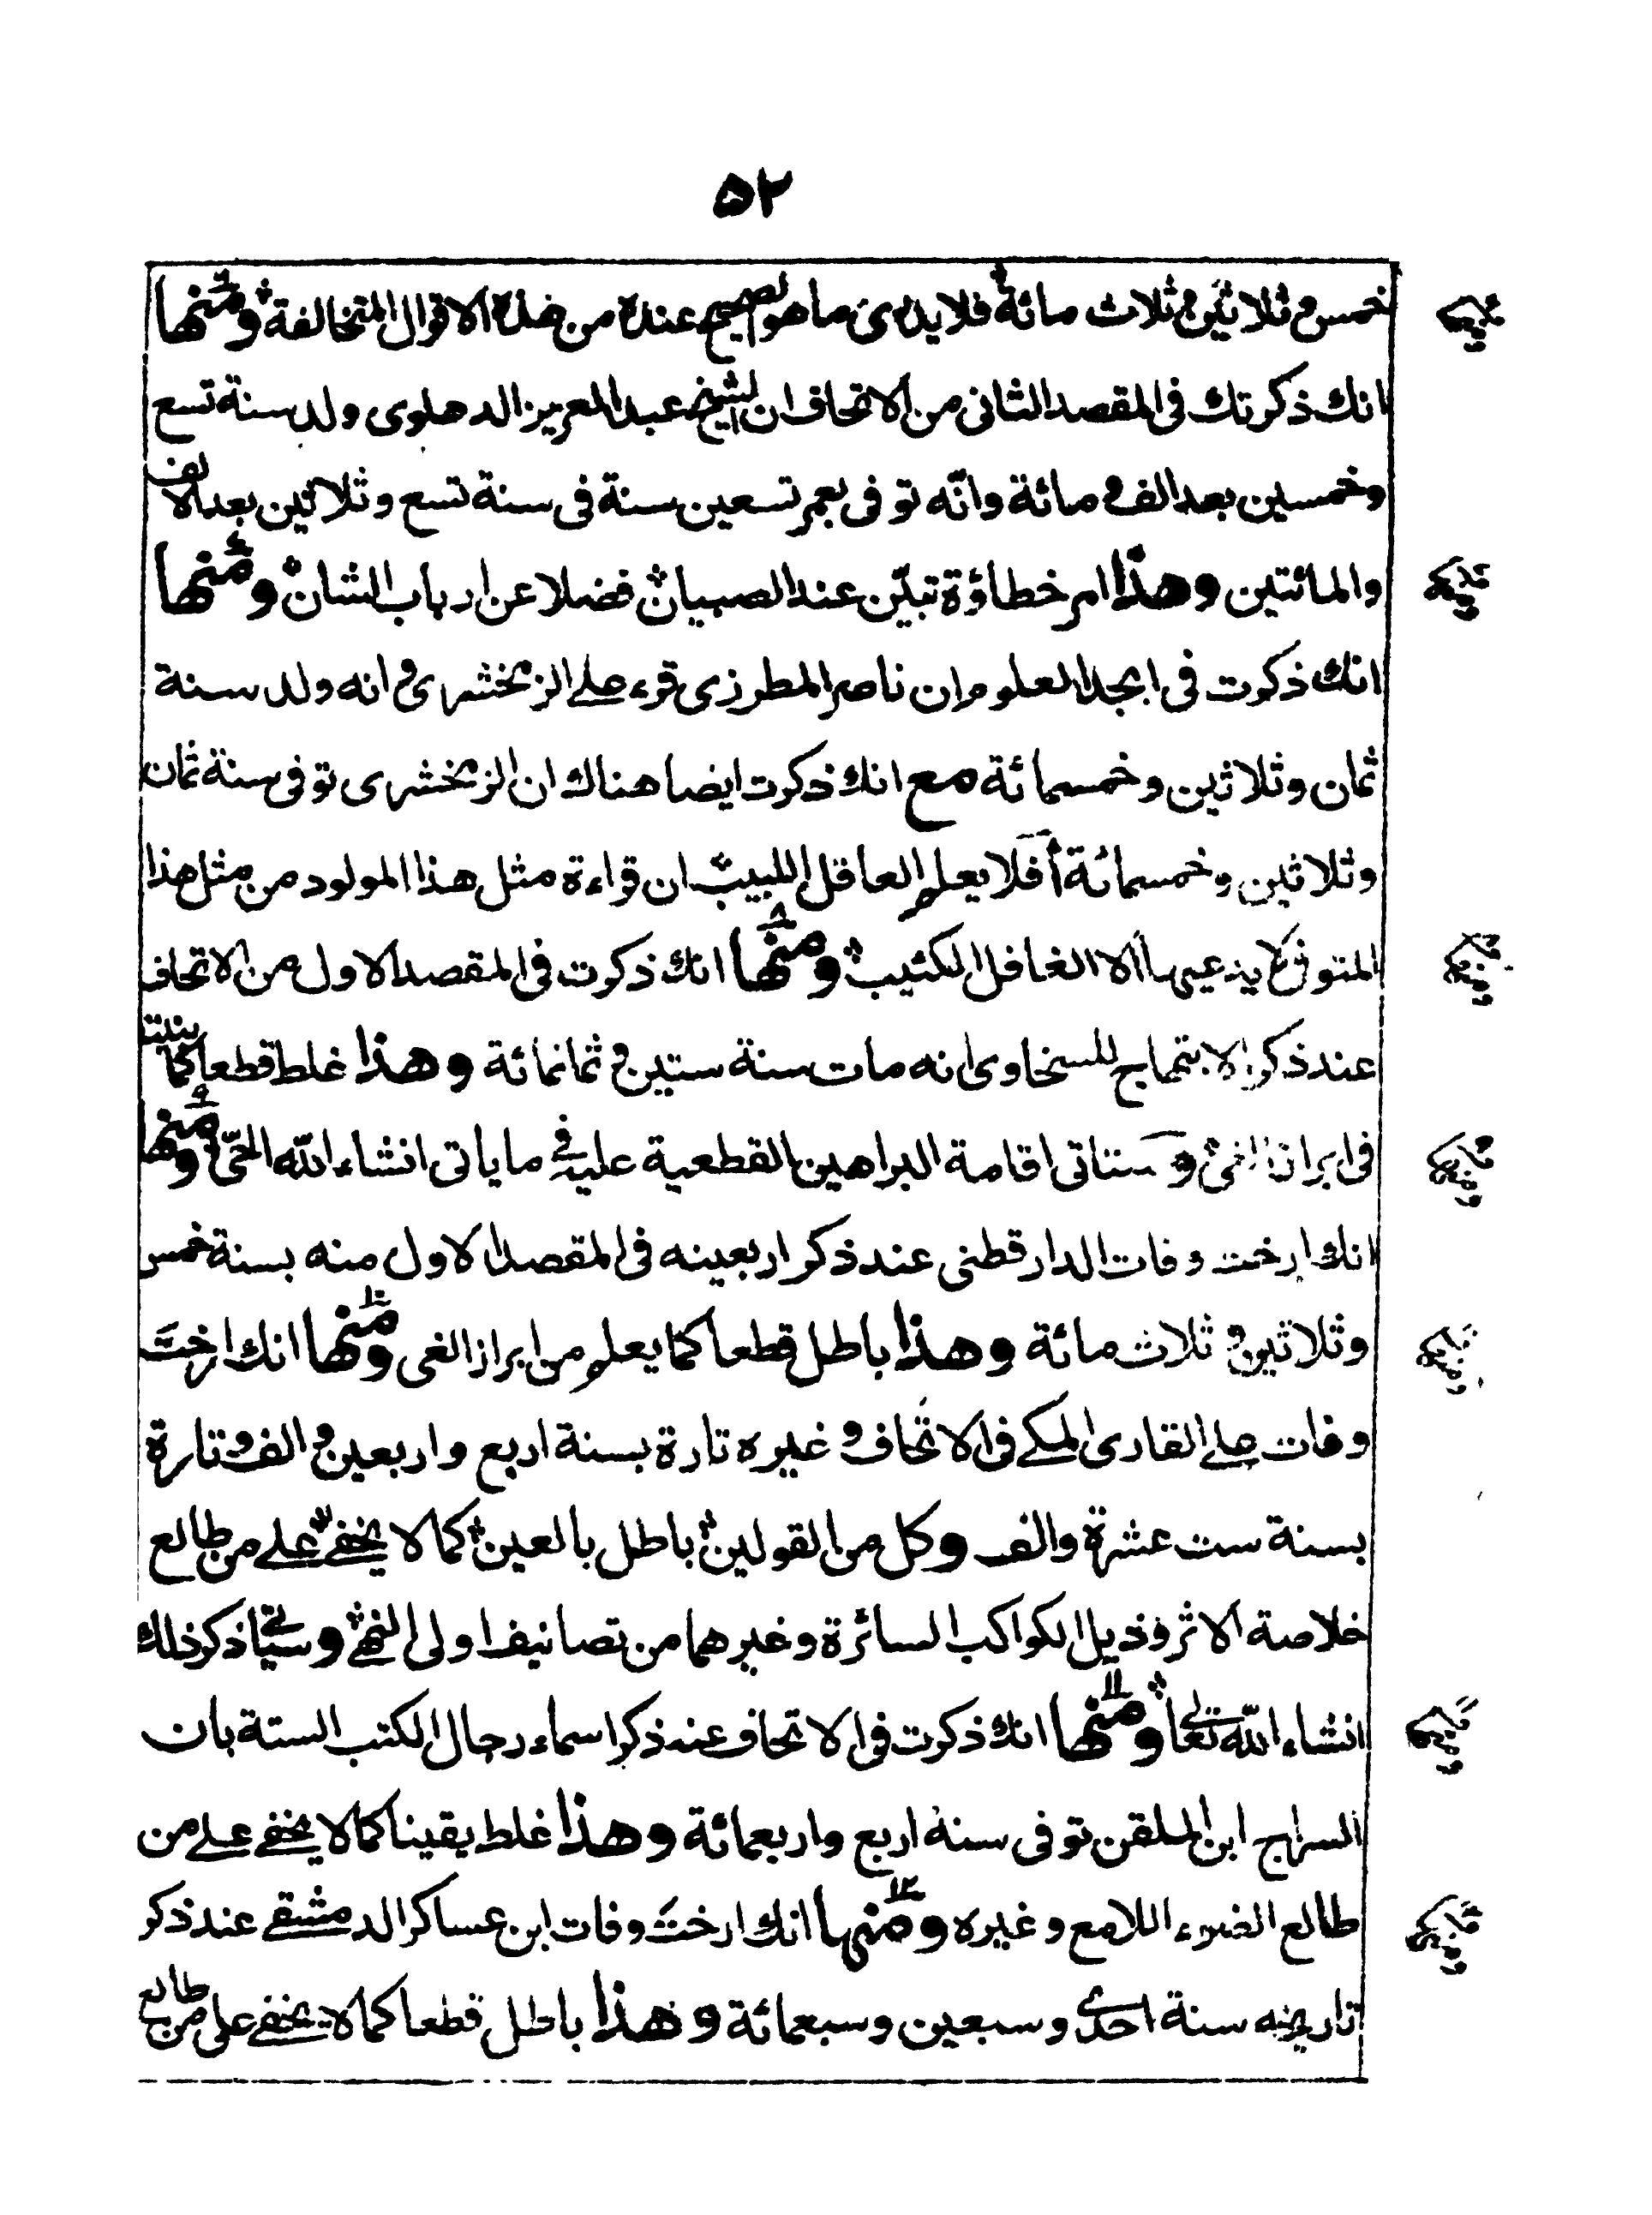 ۵۲
خمس و ثلاثين و ثلاث مائة فلا يدرى ما هو الصحيح عنده من هذه الاقوال المتخالفة ومنها
انك ذكرت فى المقصد الثانى من الاتحاف ان الشيخ عبد العزيز الدهلوى ولد سنة تسع
وخمسين بعد الف و مائة وانّه توفى بعمر تسعين سنة فى سنة تسع وثلاثين بعد الالف
والمائتين وهذا امر خطاؤة تبيّن عند الصبيان فضلا عن ارباب الشان ومنها
انك ذكرت فى ابجد العلوم ان ناصر المطرزى قرء على الزمخشرى و انه ولد سنة
ثمان وثلاثين وخمسمائة مع انك ذكرت ايضا هناك ان الزمخشرى توفى سنة ثمان
وثلاثين وخمسمائة أفلا يعلم العاقل اللبيب ان قراءة مثل هذا المولود من مثل هذا
المتوفى لا يدعيها الا الغافل الكئيب ومنها ۸ انك ذكرت فى المقصد الاول من الاتحاف
عند ذكر الابتهاج للسخاوى انه مات سنة ستين و ثمانمائة وهذا غلط قطعا كما بينته
فى ابراز الغى وستاتى اقامة البراهين القطعية عليه فى ما ياتى انشاء الله الحىّ ومنها ۹
انك ارخت وفات الدارقطنى عند ذكر اربعينه فى المقصد الاول منه بسنة خمس
وثلاثين و ثلاث مائة وهذا باطل قطعا كما يعلم من ابراز الغى ومنها ۱۰ انك ارختَ
وفات على القارى المكے فى الاتحاف و غيره تارة بسنة اربع واربعين و الف و تارة
بسنة ست عشرة والف وكل من القولين باطل بالعين كما لا يخفے على من طالع
خلاصة الاثر وذيل الكواكب السائرة وغيرهما من تصانيف اولى النهى وسياتى ذكر ذلك
انشاء الله تعالى ومنها ۱۱ انك ذكرت فى الاتحاف عند ذكر اسماء رجال الكتب الستة بان
السراج ابن الملقن توفى سنة اربع واربعمائة وهذا غلط يقينا كما لا يخفے على من
طالع الضوء اللامع وغيره ومنها ۱۲ انك ارختَ وفات ابن عساكر الدمشقے عند ذكر
تاريخه سنة احدى وسبعين وسبعمائة وهذا باطل قطعا كما لا يخفے على من طالع